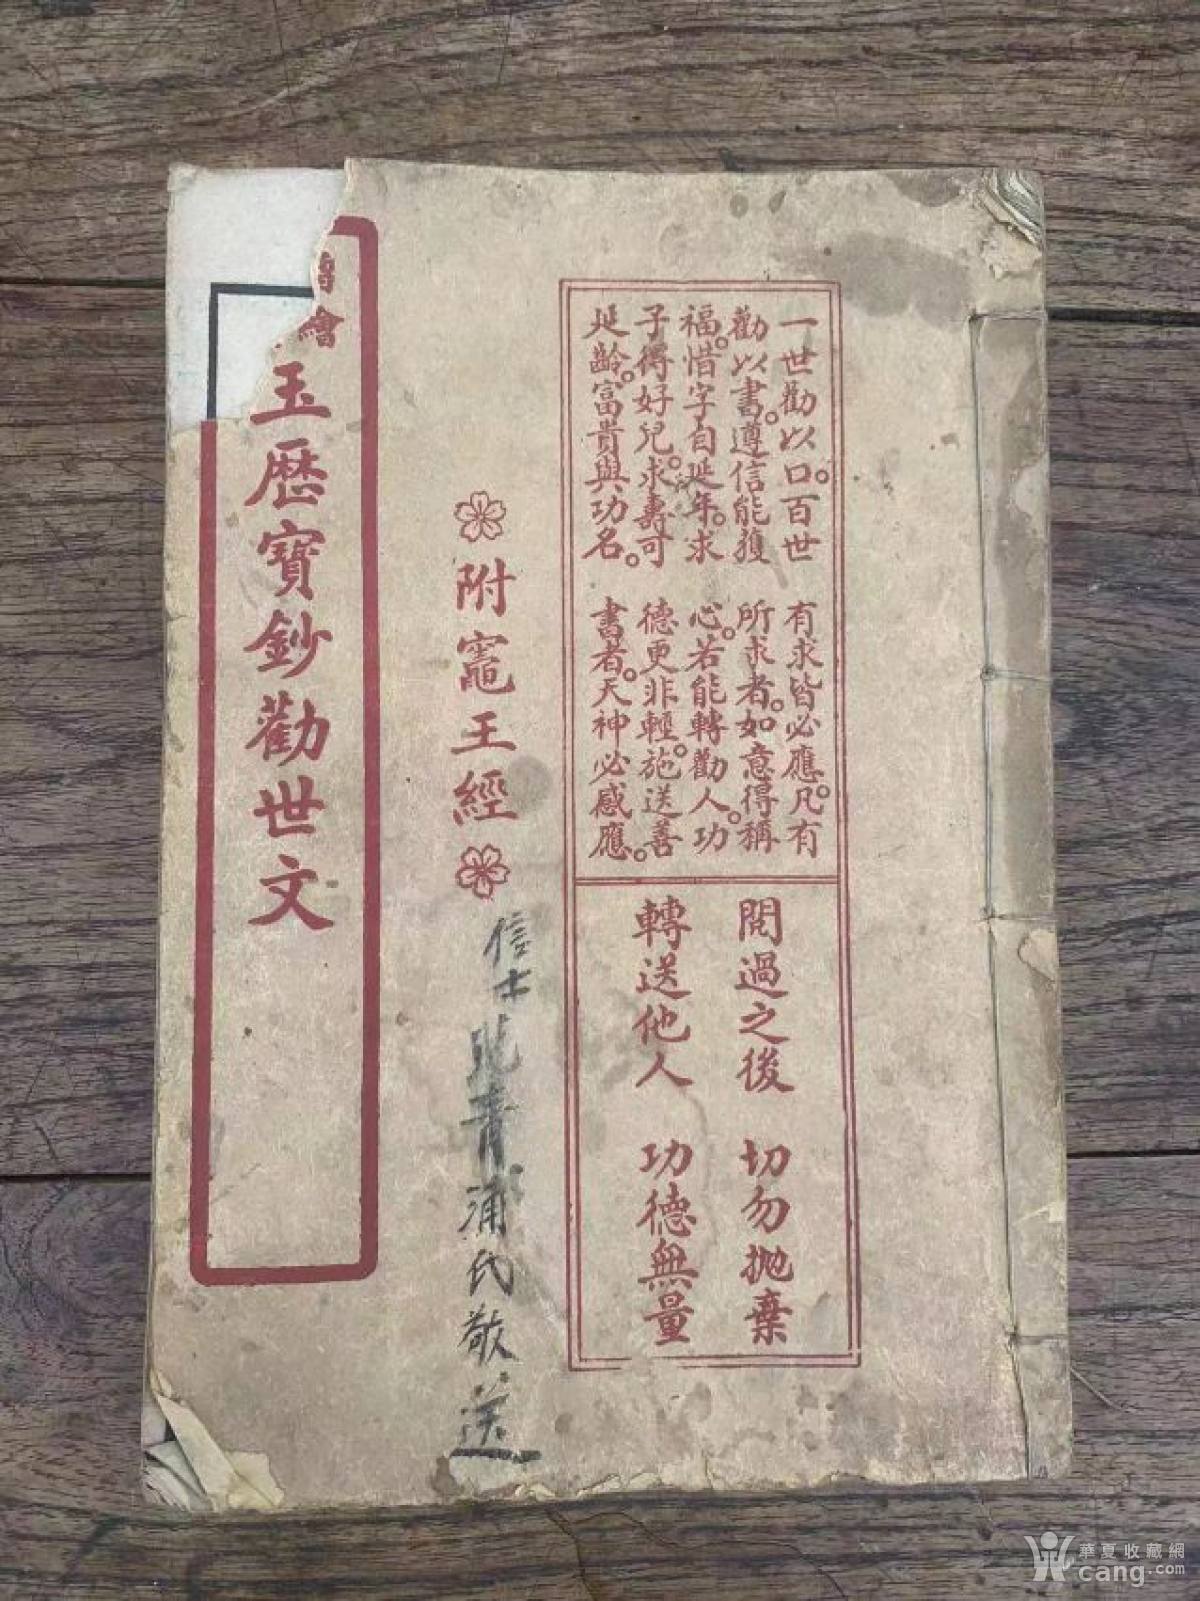 一世勸以口。百世
勸以書。遵信能獲
福。惜字自延年。求
子得好兒。求壽可
延齡。富貴與功名。
有求皆必應。凡有
所求者。如意得稱
心。若能轉勸人。功
德更非輕。施送善
書者。天神必感應。
閱過之後 切勿拋棄
轉送他人 功德無量
附竈王經
信士 青浦氏敬送
繪
玉歷寶鈔勸世文
華夏收藏網
cang.com